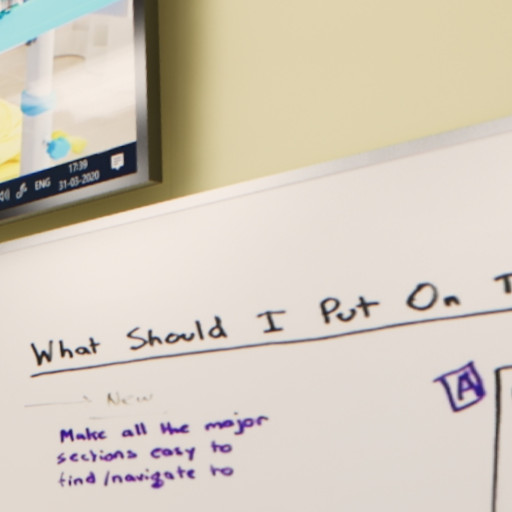 17:39
ENG 31-03-2020
What Should I Put On T
New
A
Make all the major
sections easy to
find/navigate to